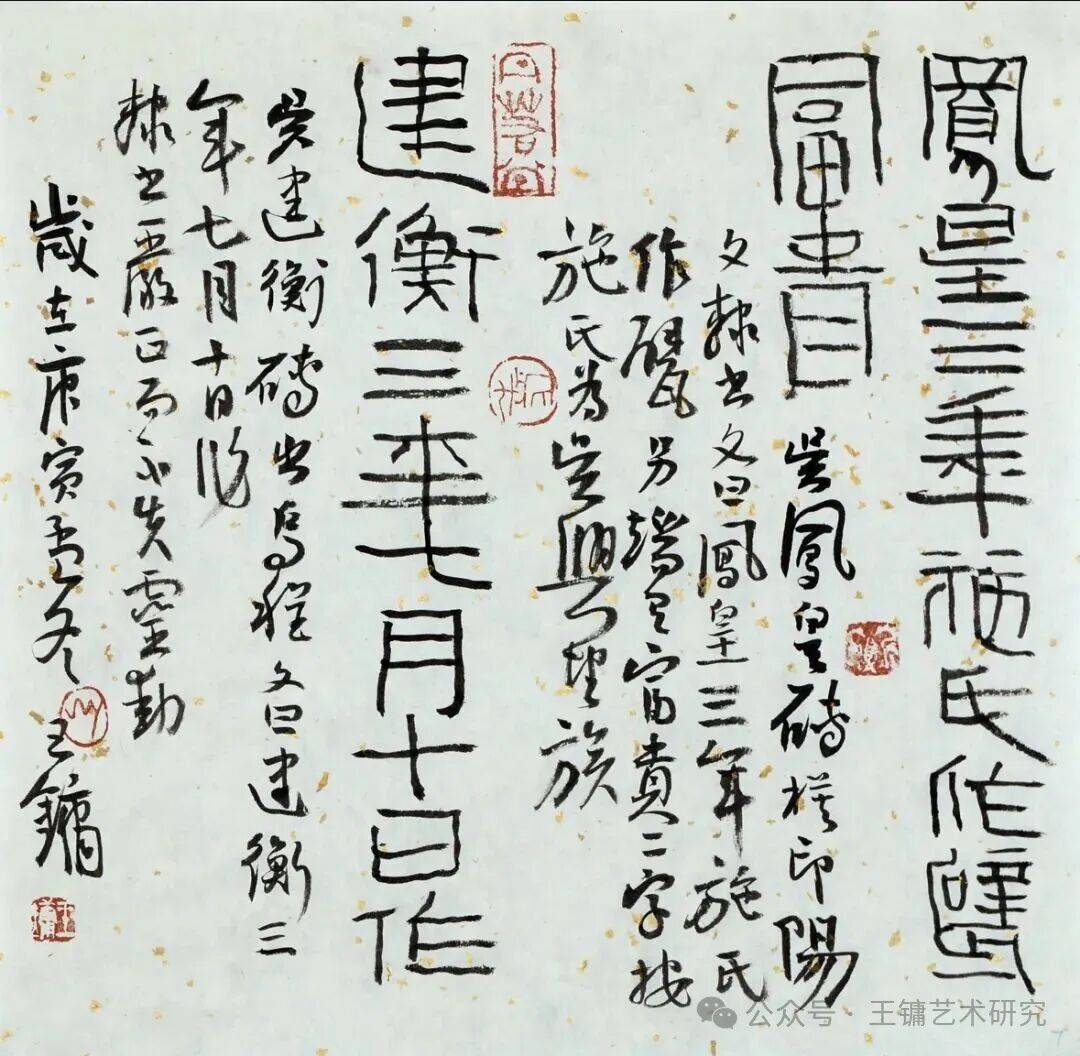 鳳皇三年施氏作甓
富貴
吳鳳皇磚模印陽
文隸書文曰鳳皇三年施氏
作甓另端有富貴二字按
施氏為吳興望族
建衡三年七月十日作
吳建衡磚出烏程文曰建衡三
年七月十日作
隸書嚴正而不失靈動
歲在庚寅孟冬王鏞
公众号·王镛艺术研究